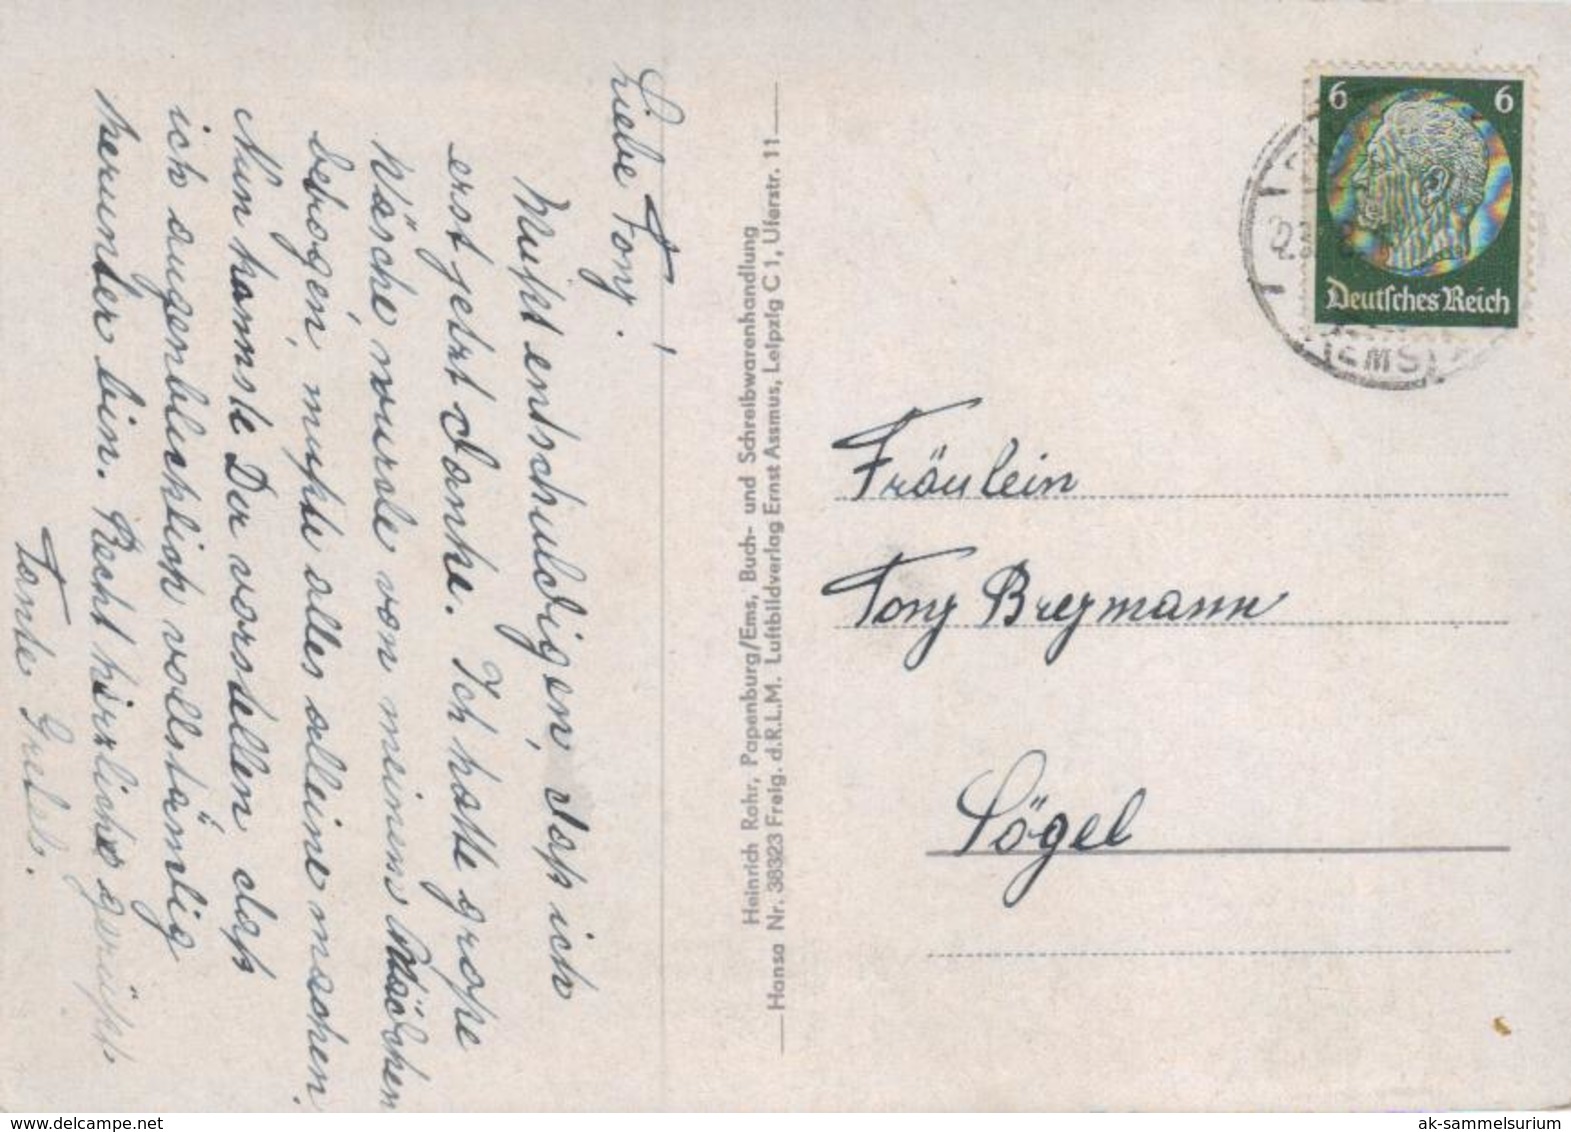 Liebe Tony!
Mußt entschuldigen, daß ich
erst jetzt danke. Ich hatte große
Wäsche wurde von meinem Mädchen
betrogen, mußte alles alleine machen.
Nun kannste Dir vorstellen, daß
ich augenblicklich vollständig
herunter bin. Recht herzliche grüßt
Tante Gretel.
Heinrich Rohr, Papenburg/Ems, Buch- und Schreibwarenhandlung
Hansa Nr. 38323 Freig. d.R.L.M. Luftbildverlag Ernst Assmus, Leipzig C 1, Uferstr. 11
6 6
Deutsches Reich
(EMS)
Fräulein
Tony Bregmann
Sögel
ak-ansichtskarten.de